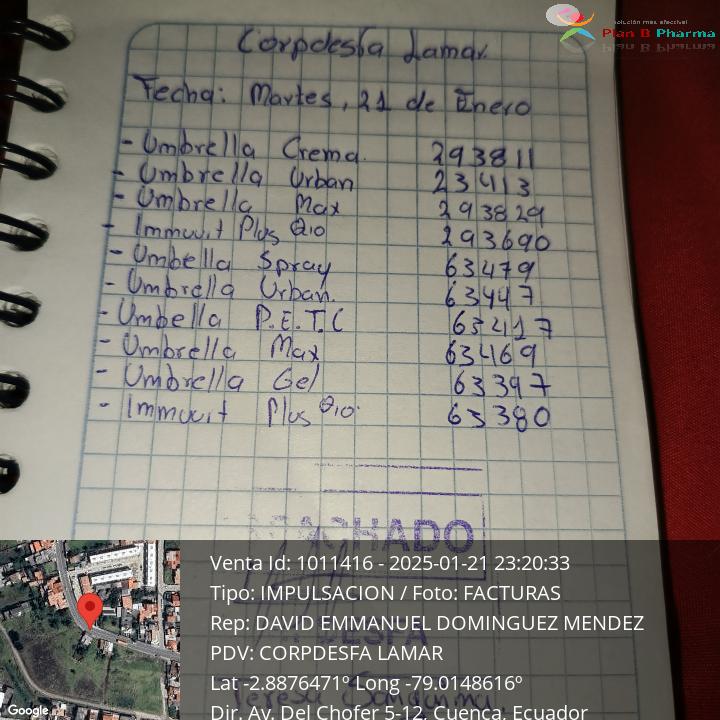 solución más efectiva!
Plan B Pharma
Corpdesfa Lamar.
Fecha: Martes, 21 de Enero
- Umbrella Crema. 293811
- Umbrella Urban 23413
- Umbrella Max 293829
- Immuvit Plus Q10 293690
- Umbella Spray 63479
- Umbrella Urban. 63447
- Umbella P.E.T.C 63417
- Umbrella Max 63469
- Umbrella Gel 63397
- Immuvit Plus Q10. 63380
MACHADO
Venta Id: 1011416 - 2025-01-21 23:20:33
Tipo: IMPULSACION / Foto: FACTURAS
Rep: DAVID EMMANUEL DOMINGUEZ MENDEZ
PDV: CORPDESFA LAMAR
Lat -2.8876471º Long -79.0148616º
Dir. Av. Del Chofer 5-12, Cuenca, Ecuador
Google